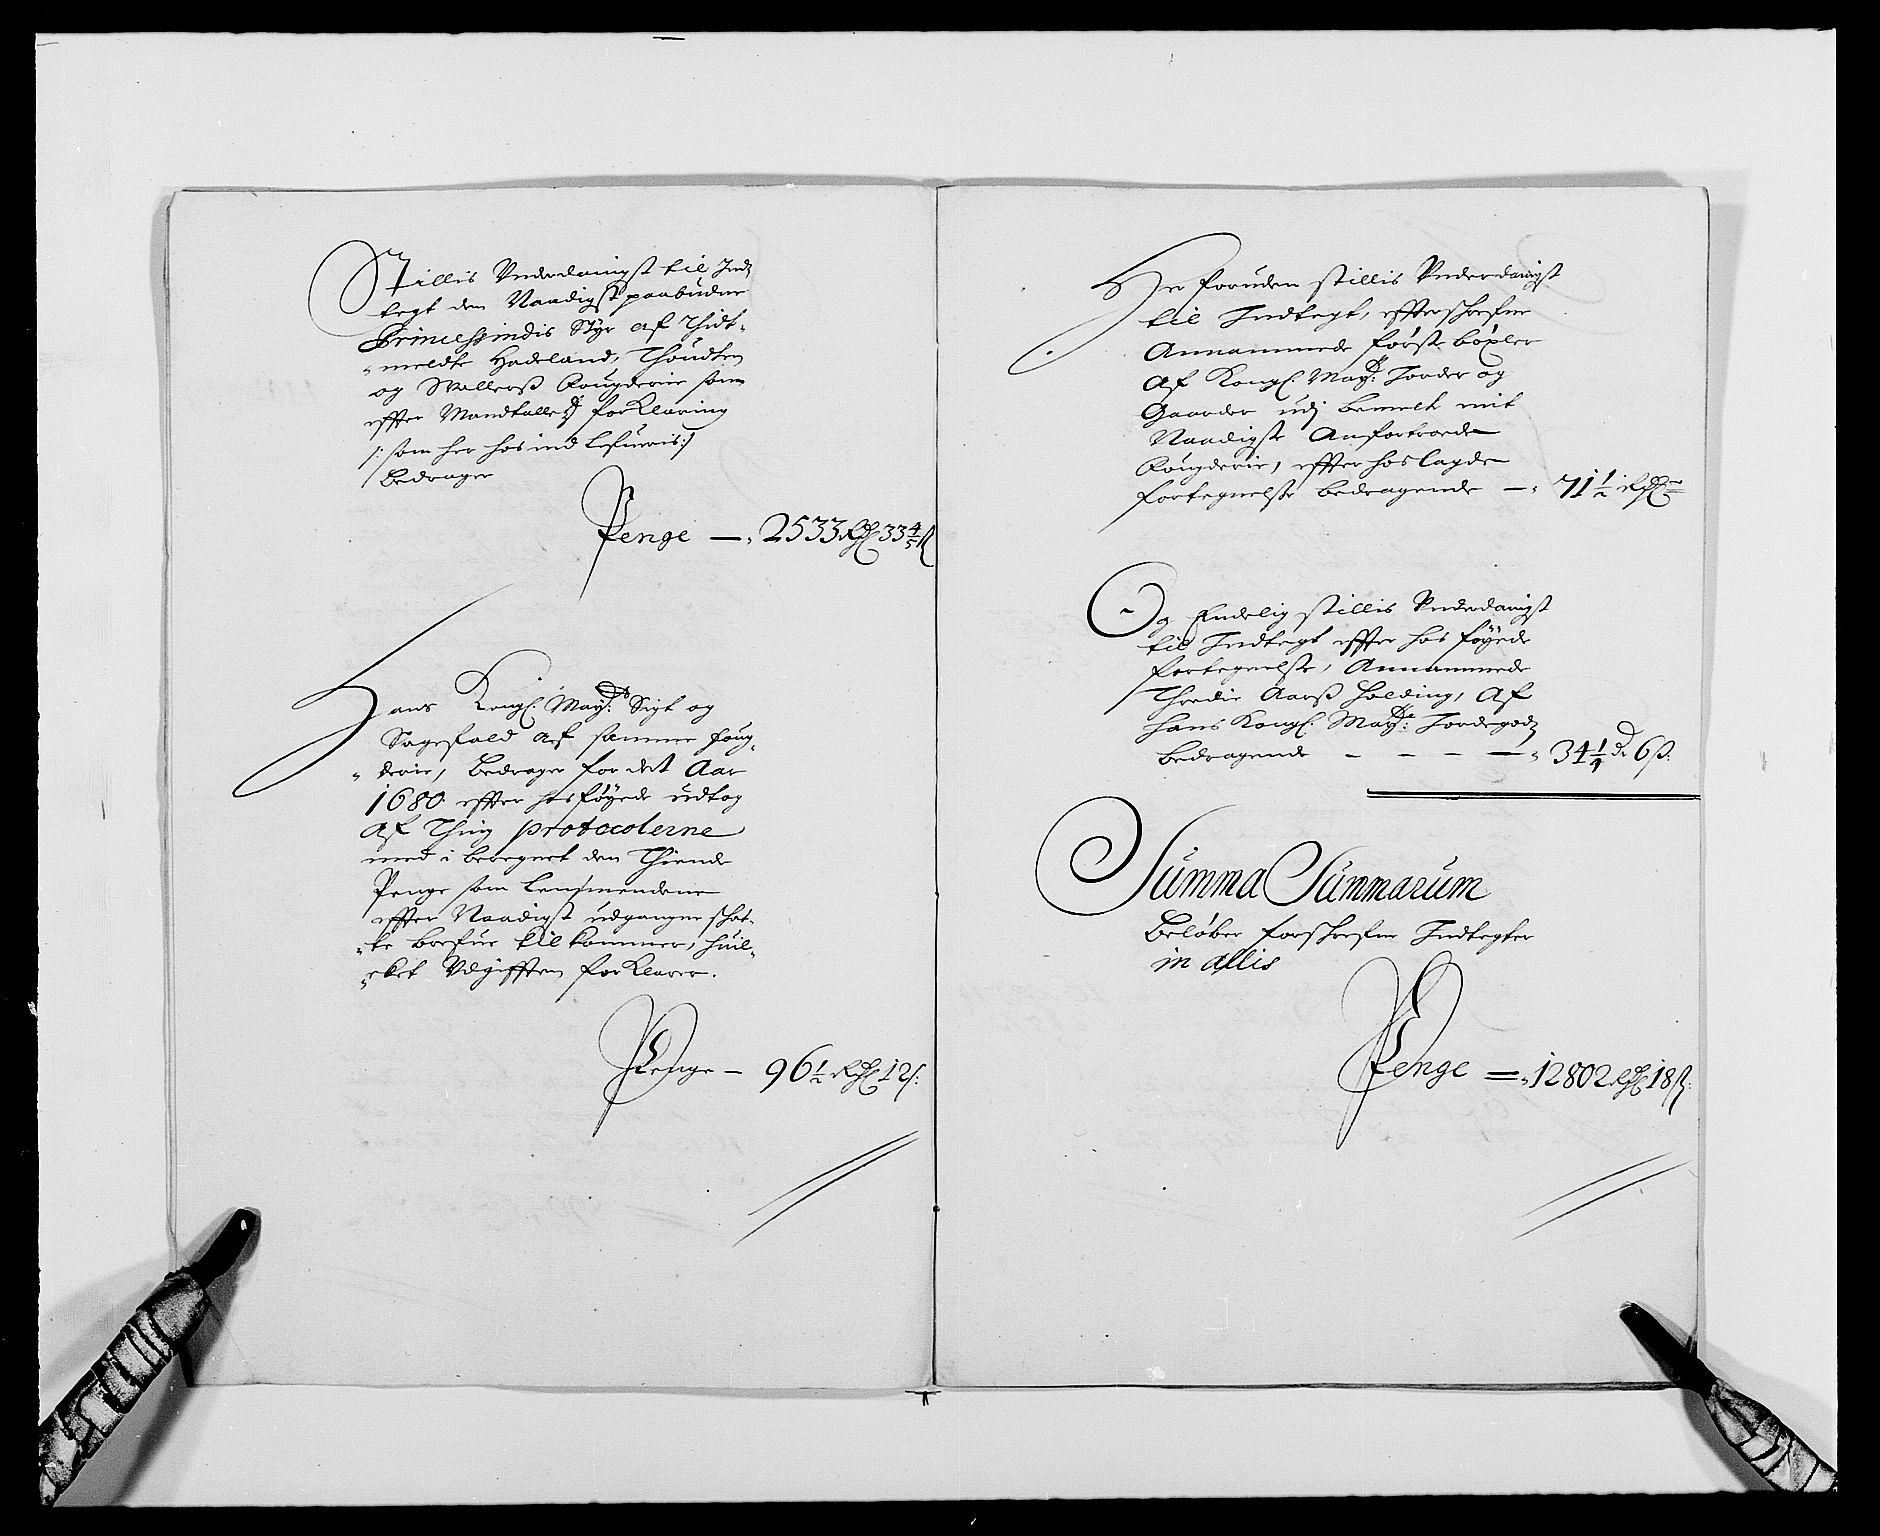 Stillis Underdanigst til Ind-
tegt den Naadigst paabudne
Princessindis Styr af Thidt-
„meldte Hadeland, Thoudten
og Wallerß Fougderie som
effter Mandtalledß forklaring
/: som her hos ind lefueris :/
Bedrager
Penge — „ 2533 Rdl 33 4/5 ß
Hans Kongl: Mayts: Sigt og
Sagefald af samme foug-
„derie, Bedrager for det Aar
1680 effter hosføyede udtog
af Thing protocolerne
med i beregnet den Thiende
Penge som Lensmendene
effter Naadigst udgangne skat-
„te brefue tilkommer, huil-
„cket Udgifften forklarer.
Penge — 96 1/2 Rdl 12 ß:
Her foruden stillis Underdanigst
til Indtegt, effterschrefne
Annammede første bøxler
af Kongl: Mayts: Jorder og
Gaarder udj bemelte mit
Naadigste Anfortroede
Fougderie, effter hoslagde
fortegnelse bedragende — „ 71 1/2 Rdlr
Og Endelig stillis Underdanigst
til Indtegt effter hos føyede
fortegnelse, Annammede
Thredie Aarß holding, Af
Hans Kongl: Mayts: Jordegodß
bedragende - - - — „ 34 1/4 dr 6 ß:
Summa Summarum
Beløber forschrefne Indtegter
in allis
Penge = „ 12802 Rdl 18 ß: